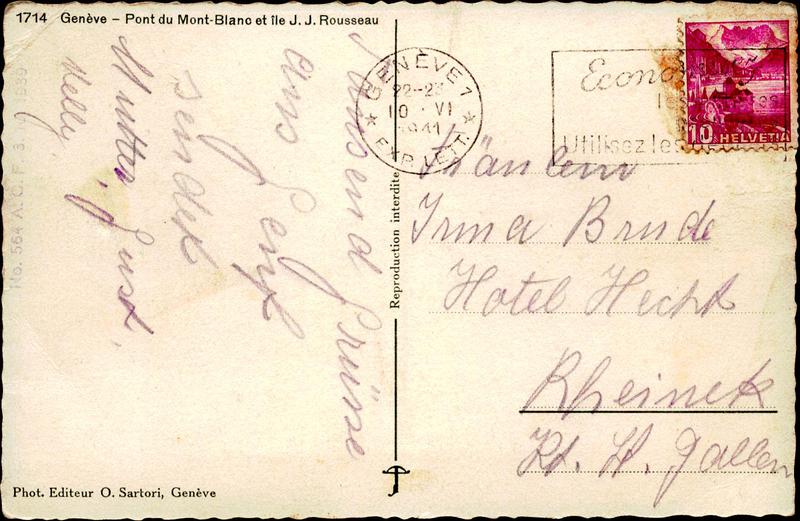 1714 Genève – Pont du Mont-Blanc et île J. J. Rousseau
Tausend Grüsse
aus Genf
sendet
Mutter, Gust
Nelly
No. 564 A. C. F. 3.
1939
Reproduction interdite
GENÈVE 1
22-23
10 VI
1941
EXP. LETT.
Econo
les
Utilisez les
10 HELVETIA
Fräulein
Irma Brude
Hotel Hecht
Rheinek
Kt. St. Gallen
Phot. Editeur O. Sartori, Genève